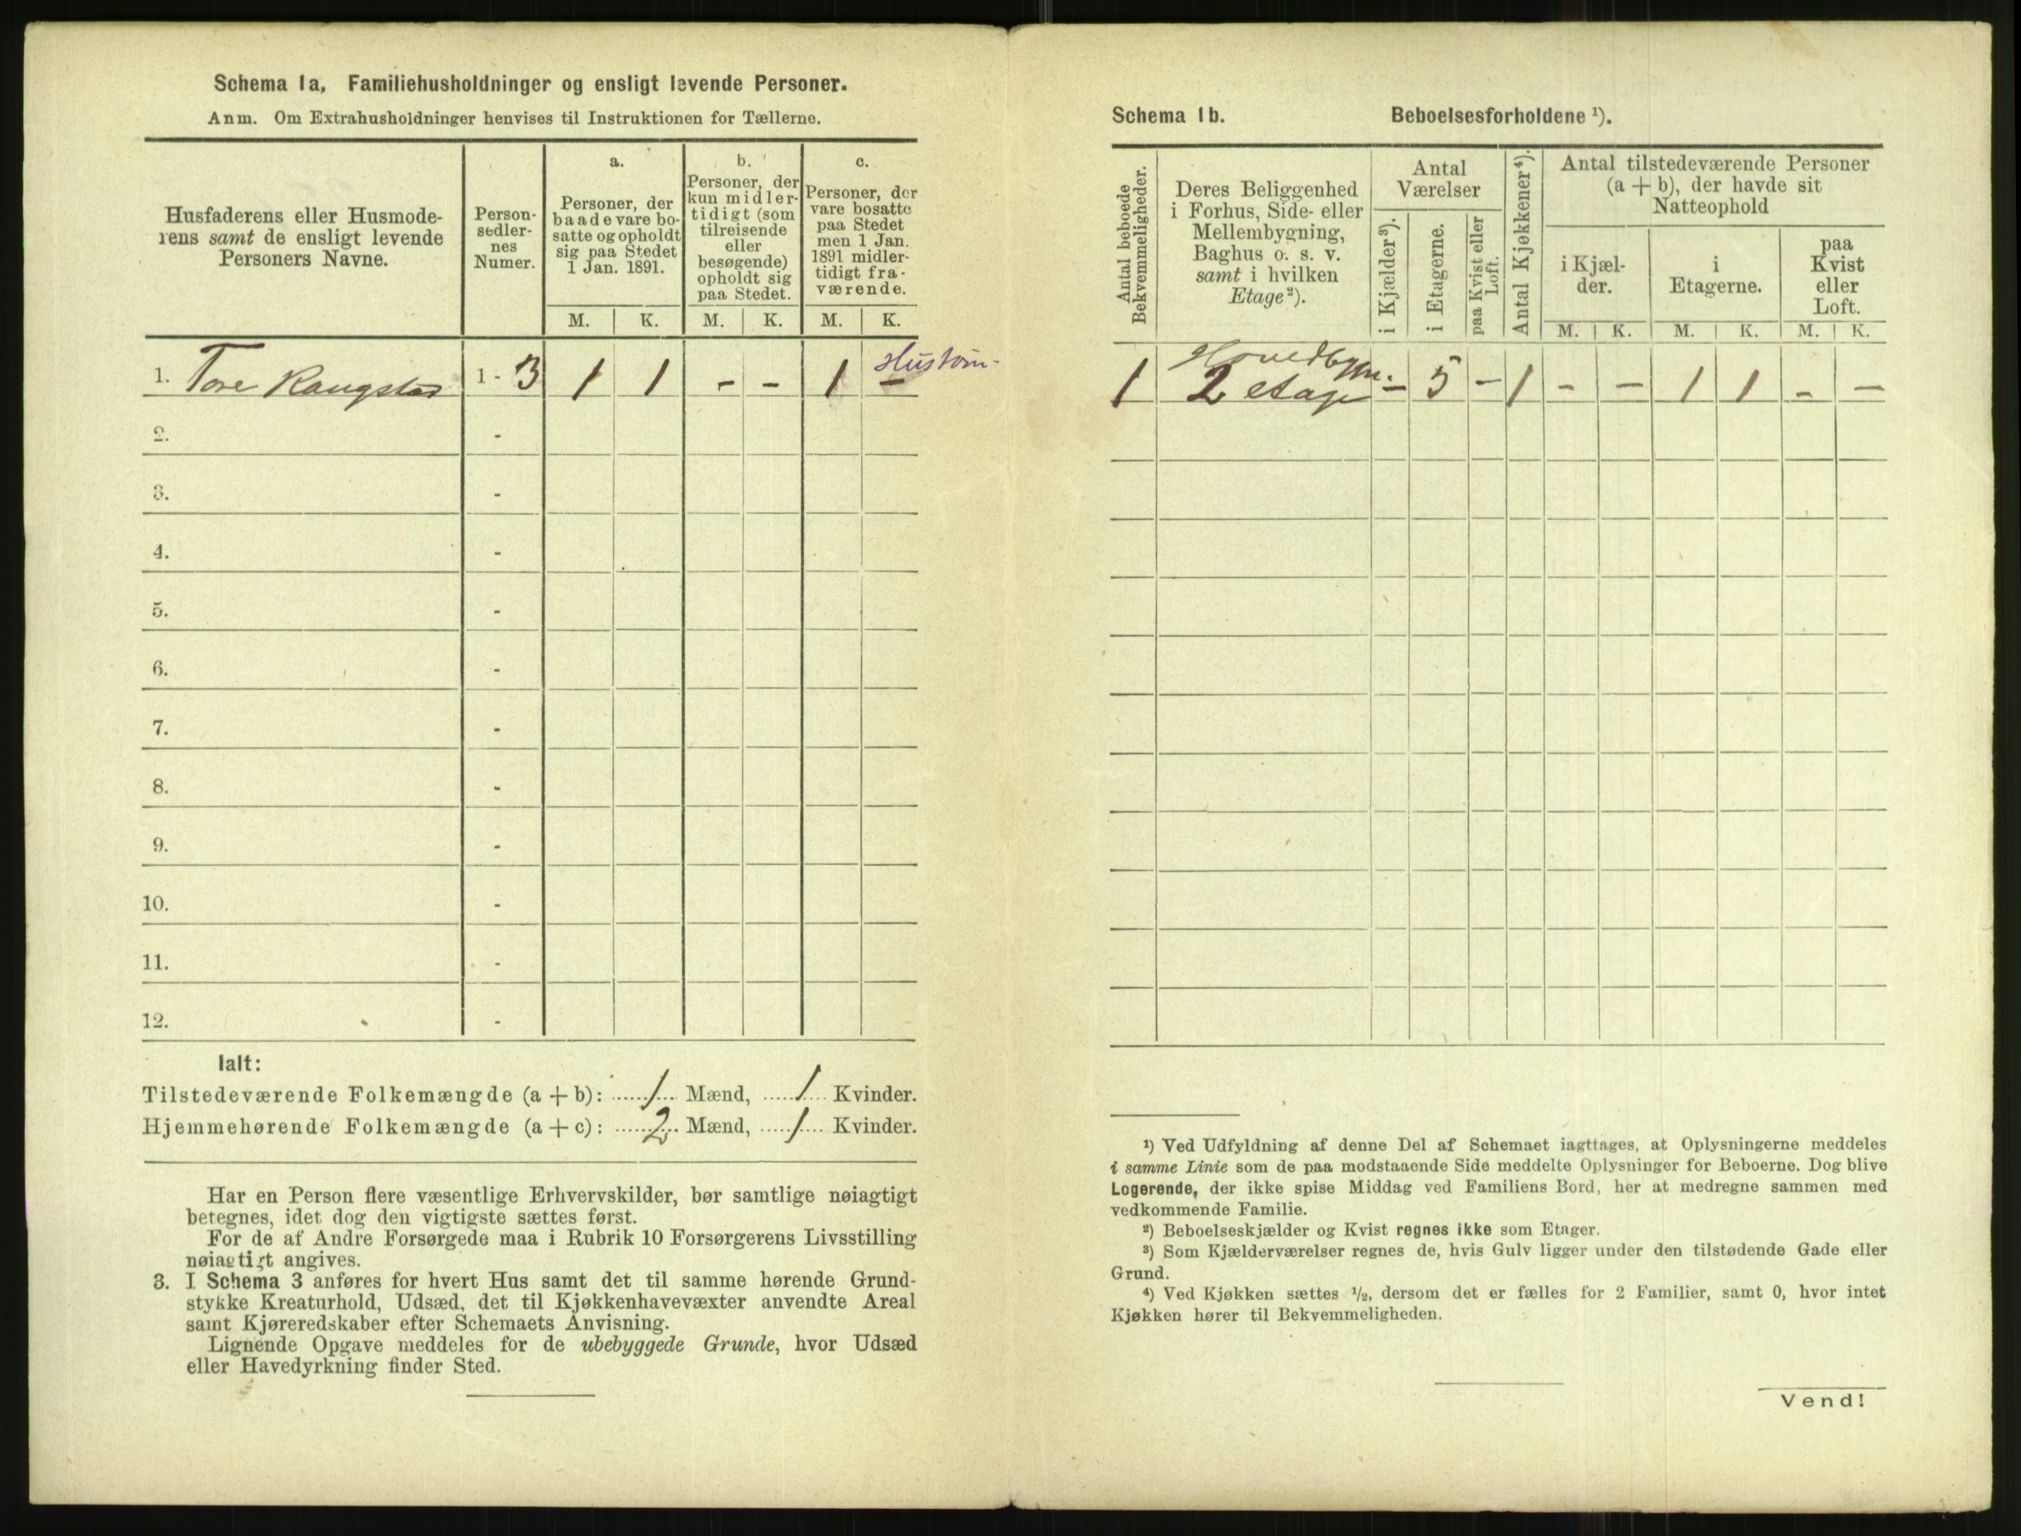 Schema 1a, Familiehusholdninger og ensligt levende Personer.
Anm. Om Extrahusholdninger henvises til Instruktionen for Tællerne.
Husfaderens eller Husmode-
rens samt de ensligt levende
Personers Navne.
Person-
sedler-
nes
Numer.
a.
Personer, der
baade vare bo-
satte og opholdt
sig paa Stedet
1 Jan. 1891.
b.
Personer, der
kun midler-
tidigt (som
tilreisende
eller
besøgende)
opholdt sig
paa Stedet.
c.
Personer, der
vare bosatte
paa Stedet
men 1 Jan.
1891 midler-
tidigt fra-
værende.
M. K. M. K. M. K.
1. Tore Raugstad 1 - 3 1 1 - - 1 -
2. -
3. -
4. -
5. -
6. -
7. -
8. -
9. -
10. -
11. -
12. -
Ialt:
Tilstedeværende Folkemængde (a + b): 1 Mænd, 1 Kvinder.
Hjemmehørende Folkemængde (a + c): 2 Mænd, 1 Kvinder.
Har en Person flere væsentlige Erhvervskilder, bør samtlige nøiagtigt
betegnes, idet dog den vigtigste sættes først.
For de af Andre Forsørgede maa i Rubrik 10 Forsørgerens Livsstilling
nøiagtigt angives.
3. I Schema 3 anføres for hvert Hus samt det til samme hørende Grund-
stykke Kreaturhold, Udsæd, det til Kjøkkenhavevæxter anvendte Areal
samt Kjøreredskaber efter Schemaets Anvisning.
Lignende Opgave meddeles for de ubebyggede Grunde, hvor Udsæd
eller Havedyrkning finder Sted.
Schema 1b. Beboelsesforholdene ¹).
Antal beboede
Bekvemmeligheder.
Deres Beliggenhed
i Forhus, Side- eller
Mellembygning,
Baghus o. s. v.
samt i hvilken
Etage ²).
Antal
Værelser
i Kjælder ³).
i Etagerne.
paa Kvist eller
Loft.
Antal Kjøkkener ⁴).
Antal tilstedeværende Personer
(a + b), der havde sit
Natteophold
i Kjæl-
der.
i
Etagerne.
paa
Kvist
eller
Loft.
M. K. M. K. M. K.
Hovedbygn.
1 2 etage - 5 - 1 - - 1 1 - -
¹) Ved Udfyldning af denne Del af Schemaet iagttages, at Oplysningerne meddeles
i samme Linie som de paa modstaaende Side meddelte Oplysninger for Beboerne. Dog blive
Logerende, der ikke spise Middag ved Familiens Bord, her at medregne sammen med
vedkommende Familie.
²) Beboelseskjælder og Kvist regnes ikke som Etager.
³) Som Kjælderværelser regnes de, hvis Gulv ligger under den tilstødende Gade eller
Grund.
⁴) Ved Kjøkken sættes ½, dersom det er fælles for 2 Familier, samt 0, hvor intet
Kjøkken hører til Bekvemmeligheden.
Vend!